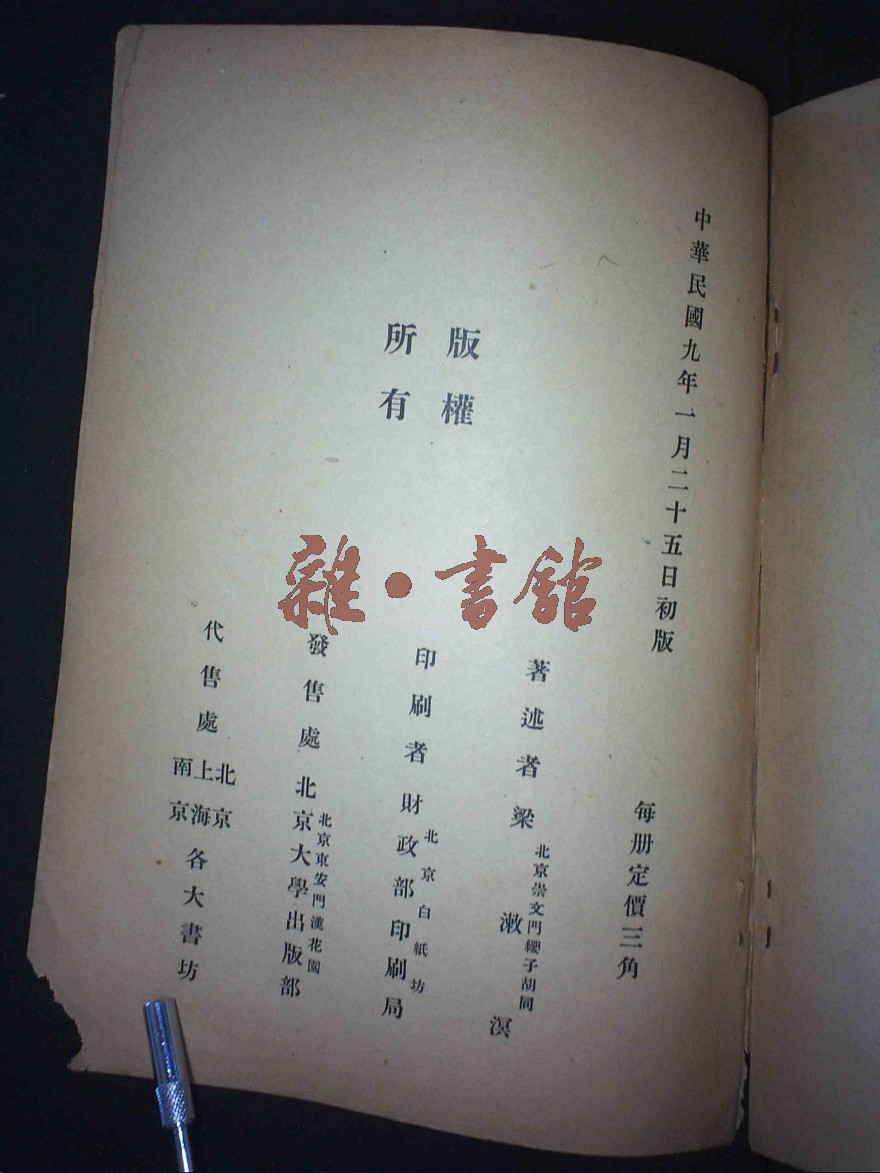 中華民國九年一月二十五日初版
每册定價三角
版權
所有
著述者梁漱溟
北京崇文門纓子胡同
印刷者財政部印刷局
北京白紙坊
發售處北京大學出版部
北京東安門漢花園
代售處
北京
上海
南京
各大書坊
雜·書舘